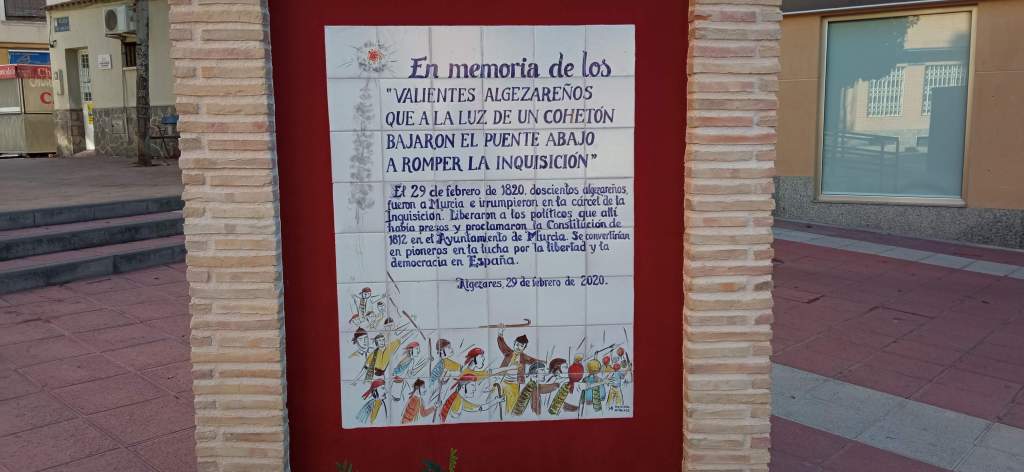 En memoria de los
"VALIENTES ALGEZAREÑOS
QUE A LA LUZ DE UN COHETÓN
BAJARON EL PUENTE ABAJO
A ROMPER LA INQUISICIÓN"
El 29 de febrero de 1820, doscientos algezareños,
fueron a Murcia e irrumpieron en la cárcel de la
Inquisición. Liberaron a los políticos que allí
había presos y proclamaron la Constitución de
1812 en el Ayuntamiento de Murcia. Se convertirían
en pioneros en la lucha por la libertad y la
democracia en España.
Algezares, 29 de febrero de 2020.